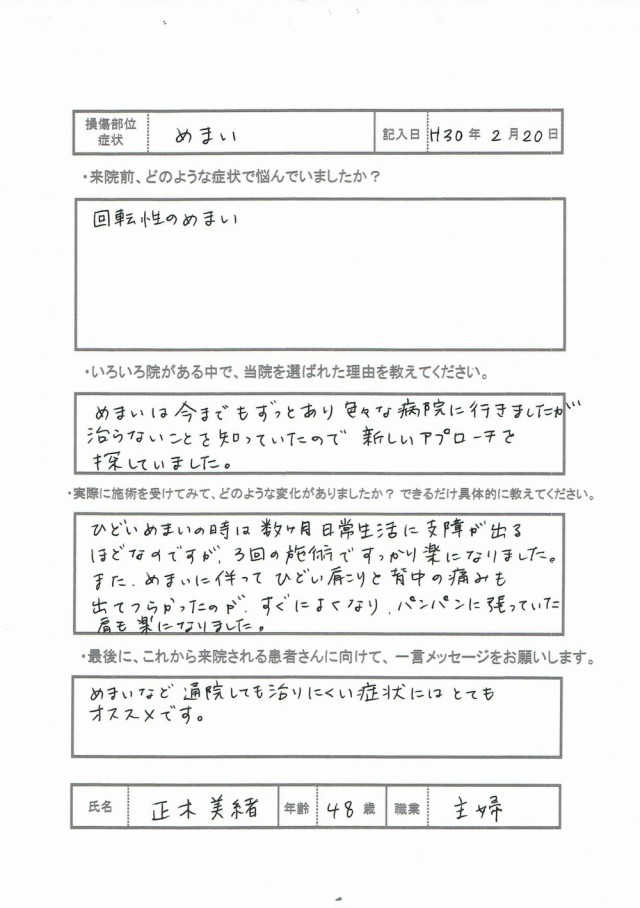 損傷部位 症状 めまい 記入日 H30年 2月20日
・来院前、どのような症状で悩んでいましたか？
回転性のめまい
・いろいろ院がある中で、当院を選ばれた理由を教えてください。
めまいは今までもずっとあり色々な病院に行きましたが
治らないことを知っていたので 新しいアプローチを
探していました。
・実際に施術を受けてみて、どのような変化がありましたか？ できるだけ具体的に教えてください。
ひどいめまいの時は数ヶ月日常生活に支障が出る
ほどなのですが、3回の施術ですっかり楽になりました。
また、めまいに伴って ひどい肩こりと背中の痛みも
出てつらかったのが、すぐによくなり、パンパンに張っていた
肩も楽になりました。
・最後に、これから来院される患者さんに向けて、一言メッセージをお願いします。
めまいなど 通院しても治りにくい症状には とても
オススメです。
氏名 正木美緒 年齢 48歳 職業 主婦